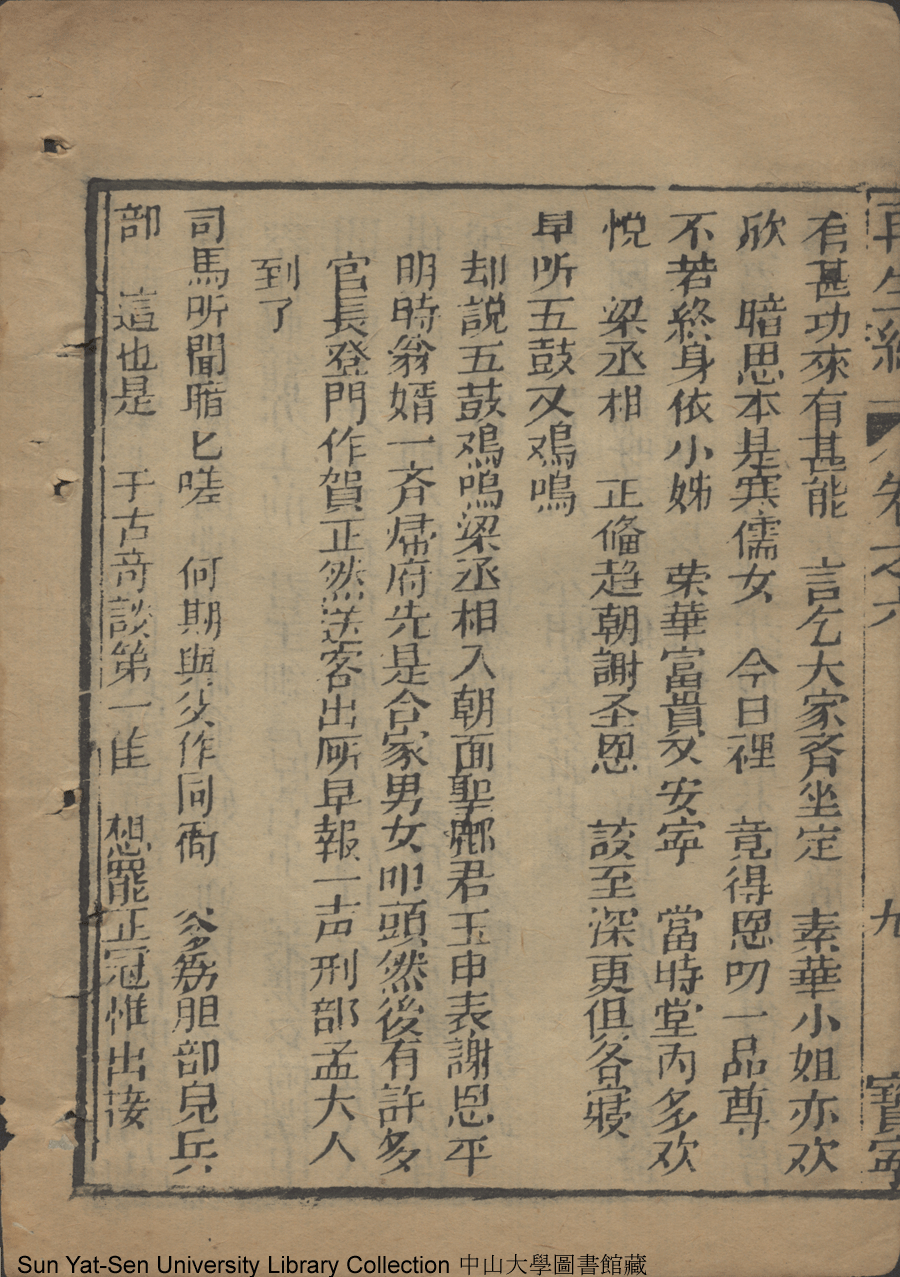 再生緣 卷之六 九 寶寧
有甚功來有甚能 言乞大家斉坐定 素華小姐亦欢
欣 暗思本是寒儒女 今日裡 竟得恩叨一品尊
不若終身依小姊 荣華富貴又安寧 當時堂内多欢
悦 梁丞相 正俻趋朝謝圣恩 談至深更俱各寝
早听五鼓又鳮鳴
却説五鼓鳮鳴梁丞相入朝面聖郷君玉申表謝恩平
明時翁婿一斉帰府先是合家男女叩頭然後有許多
官長登門作賀正然送客出厛早報一声刑部孟大人
到了
司馬所聞暗匕嗟 何期與父作同衙 刑部兒兵
部 這也是 千古竒談第一佳 想罷正冠惟出接
Sun Yat-Sen University Library Collection 中山大學圖書館藏